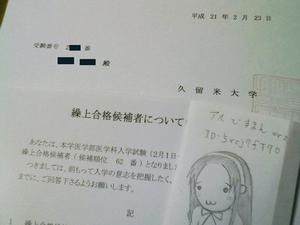 平成 21年 2月 23日
受験番号 2 番
殿
久留米大学
繰上合格候補者について
あなたは、本学医学部医学科入学試験（2月1日
繰上合格候補者（候補順位 62 番）となりました
つきましては、前もって入学の意志を把握したく、
までに、ご回答下さるようお願いします。
記